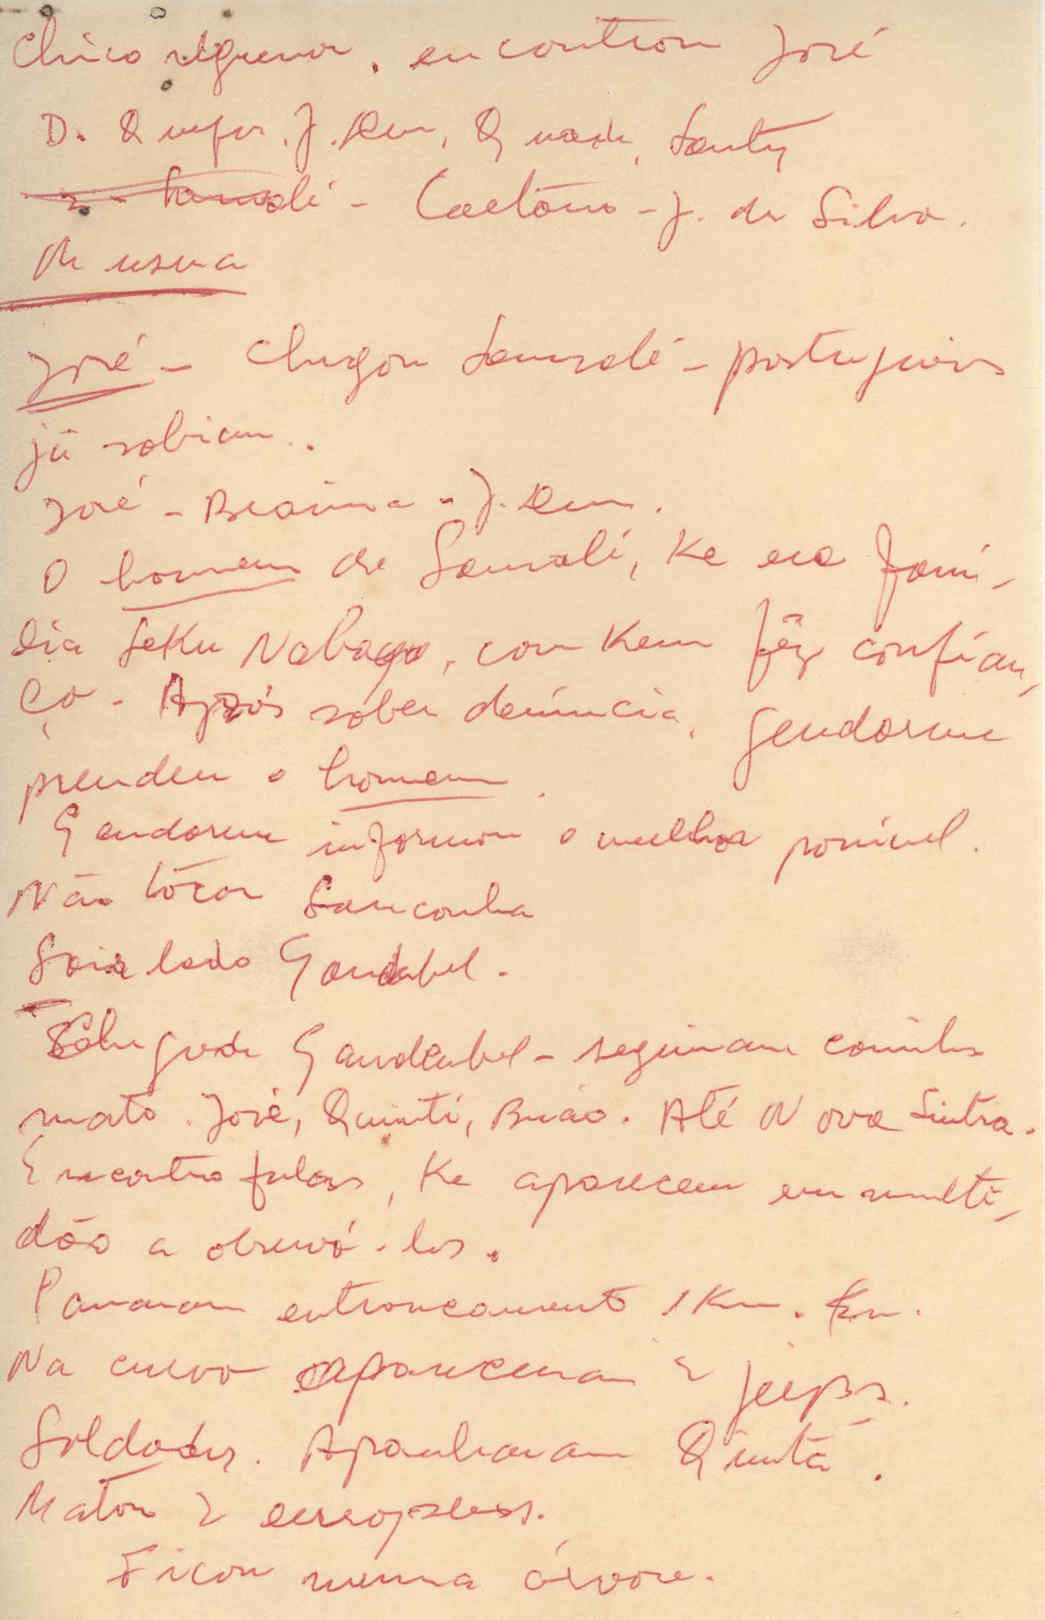 Chico regressou, encontrou José
D. Quefor, J. Dem, Quade, Santy
Sansalé - Caetano - J. da Silva.
Musna
José - Chegou Sansalé - portugueses
já sabiam..
José - Braima - J. Dem.
O homem de Sansalé, Ke era famí-
lia Seku Nabaga, com Kem fêz confian-
ça. Após saber denúncia, gendarme
prendeu o homem.
Gendarme informou o melhor possível.
Não tocar Sanconha
Sair lado Gandabel.
de Gandabel - seguiram caminho
mato. José, Quintí, Braão. Até Nova Sintra.
Encontro fulas, Ke aparecem em multi-
dão a observá-los.
Pararam entroncamento 1 Km.
Na curva apareceram 2 jeeps.
Soldados. Apanharam Quintá.
Matou 2 europeus.
Ficou numa árvore.